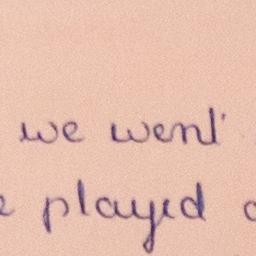 we went
played